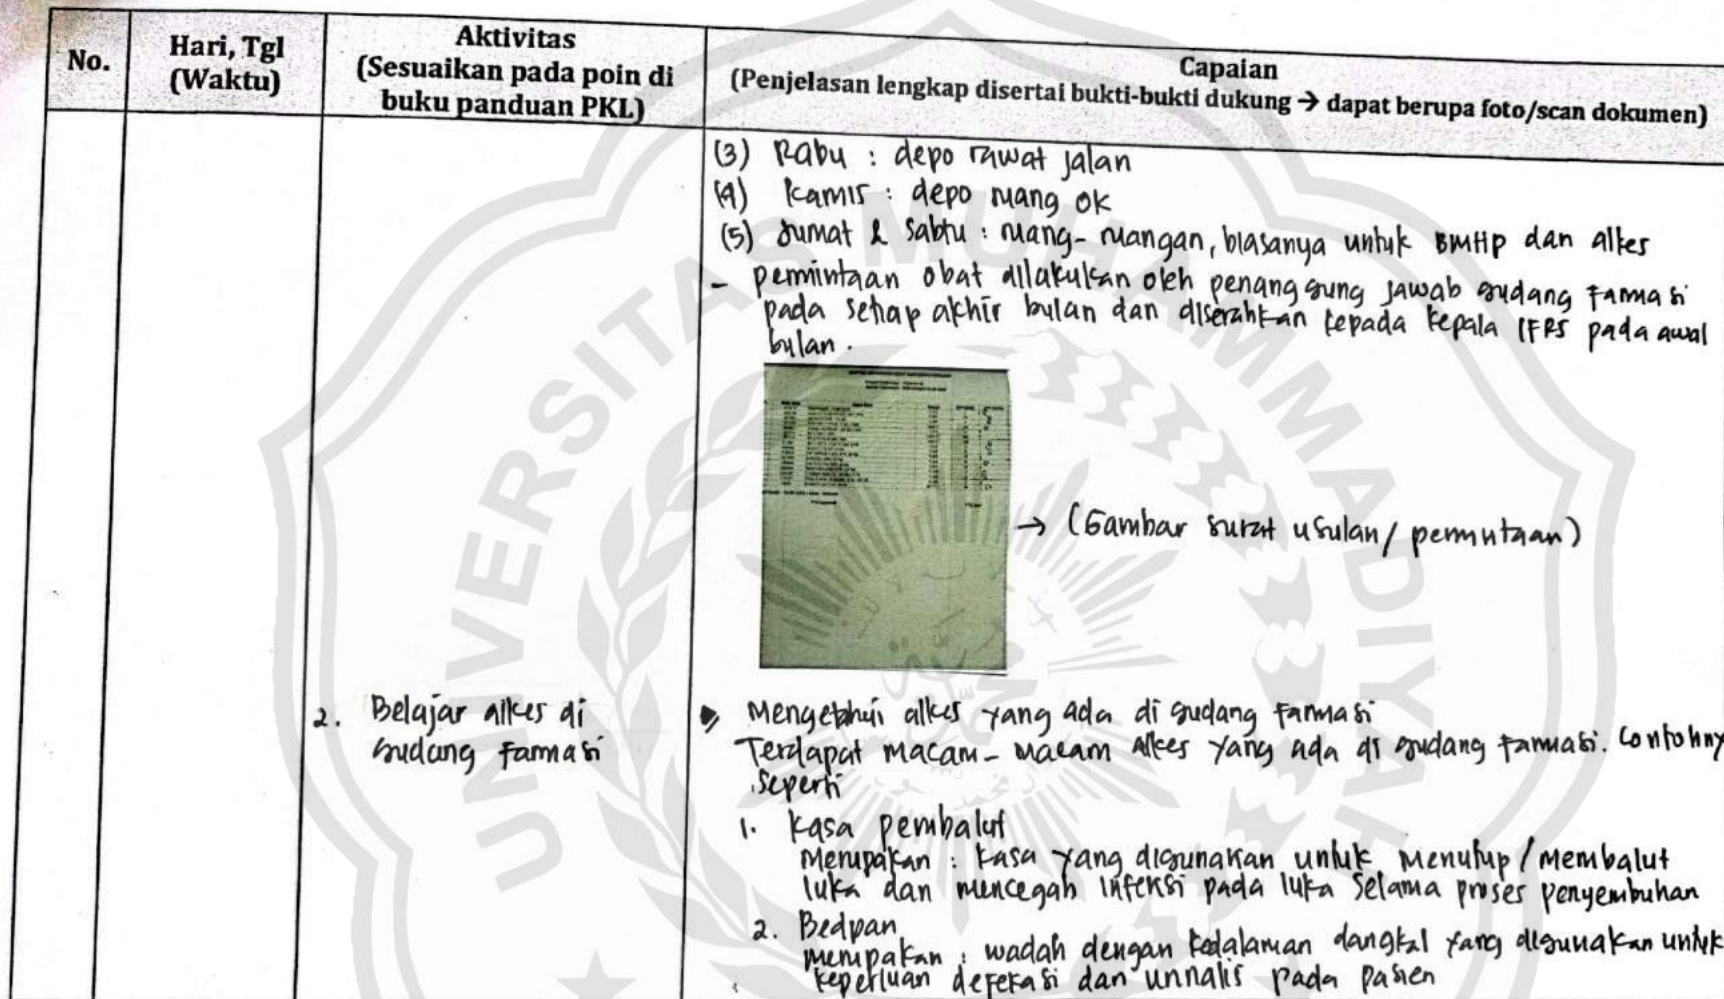 No.
Hari, Tgl
(Waktu)
Aktivitas
(Sesuaikan pada poin di
buku panduan PKL)
Capaian
(Penjelasan lengkap disertai bukti-bukti dukung → dapat berupa foto/scan dokumen)
(3) Rabu : depo rawat jalan
(4) Kamis : depo ruang OK
(5) Jumat & Sabtu : ruang-ruangan, biasanya untuk BMHP dan alkes
- permintaan obat dilakukan oleh penanggung jawab gudang farmasi
pada setiap akhir bulan dan diserahkan kepada kepala IFRS pada awal
bulan.
→ (Gambar surat usulan/permintaan)
2. Belajar alkes di
gudang farmasi
Mengetahui alkes yang ada di gudang farmasi
Terdapat macam-macam alkes yang ada di gudang farmasi. Contohny
seperti
1. Kasa pembalut
Merupakan : kasa yang digunakan untuk menutup/membalut
luka dan mencegah infeksi pada luka selama proses penyembuhan
2. Bedpan
merupakan : wadah dengan kedalaman dangkal yang digunakan untuk
keperluan defekasi dan urinalis pada pasien
UNIVERSITAS MUHAMMADIYAH